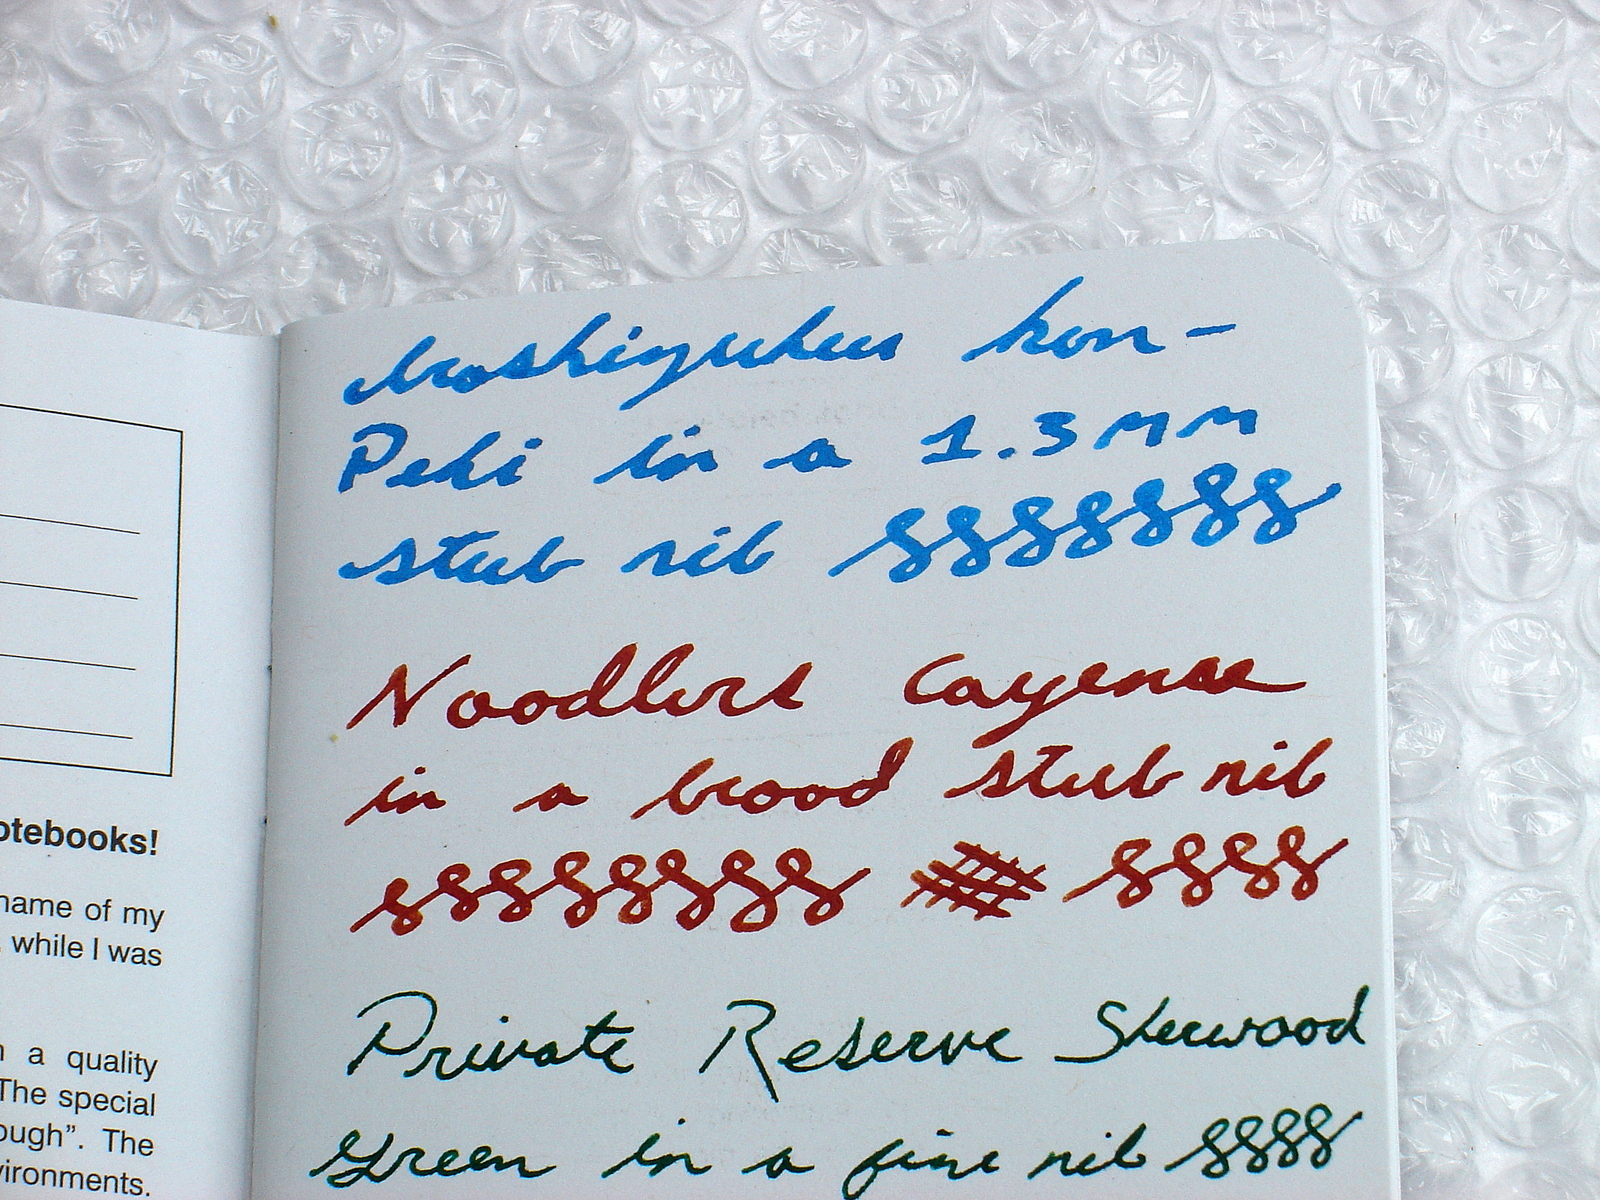 otebooks!
name of my
, while I was
a quality
The special
ough". The
vironments.
Iroshizuku kon-
Peki in a 1.3mm
stub nib
Noodlers Cayenne
in a broad stub nib
Private Reserve Sherwood
Green in a fine nib